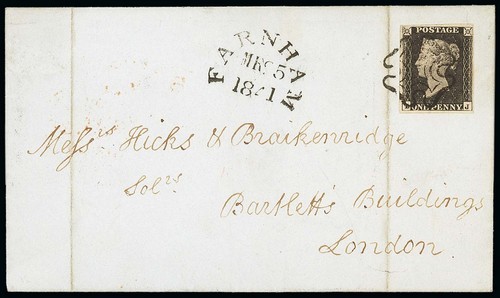 FARNHAM
MR 5
1841
POSTAGE
ONE PENNY
J
Messrs Hicks & Braikenridge
Solrs
Bartlett's Buildings
London